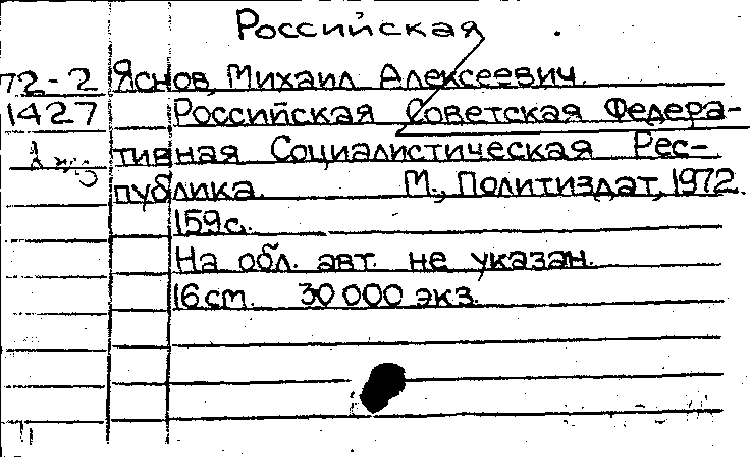 Российская
72-2 Яснов, Михаил Алексеевич.
1427 Российская Советская Федера-
тивная Социалистическая Рес-
публика. М., Политиздат, 1972.
159с.
На обл. авт. не указан.
16 cm. 30 000 экз.